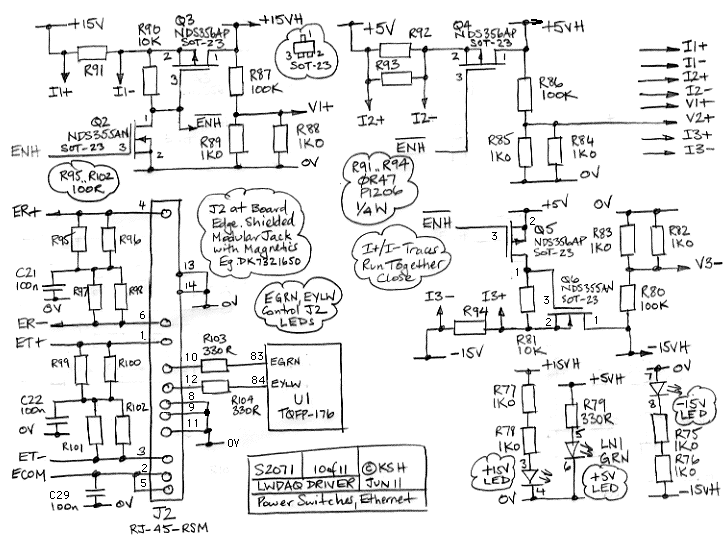 +15V
R90
10K
Q3
NDS356AP
SOT-23
+15VH
2
1
3
R91
I1+
I1-
3
1
2
SOT-23
R87
100K
V1+
Q2
NDS355AN
SOT-23
1
3
2
ENH
ENH
R89
1K0
R88
1K0
0V
+5V
R92
R93
I2+
I2-
Q4
NDS356AP
SOT-23
+5VH
2
1
3
ENH
R86
100K
R85
1K0
R84
1K0
0V
I1+
I1-
I2+
I2-
V1+
V2+
I3+
I3-
R95..R102
100R
R91..R94
0R47
P1206
1/4W
J2 at Board
Edge, Shielded
Modular Jack
with Magnetics
Eg. DK7821650
I+/I- Traces
Run Together
Close
EGRN, EYLW
Control J2
LEDs
ER+
4
R95
R96
C21
100n
0V
R97
R98
ER-
6
ET+
1
R99
R100
C22
100n
0V
R101
R102
ET-
3
ECOM
2
5
C29
100n
0V
J2
RJ-45-RSM
13
14
0V
10
R103
330R
83
EGRN
12
R104
330R
84
EYLW
U1
TQFP-176
8
9
11
0V
ENH
+5V
2
3
Q5
NDS356AP
SOT-23
1
Q6
NDS355AN
SOT-23
3
2
1
I3-
I3+
R94
-15V
R81
10K
0V
R83
1K0
R82
1K0
V3-
R80
100K
-15VH
+15VH
R77
1K0
R78
1K0
3
4
+15V
LED
0V
+5VH
R79
330R
5
6
LN1
GRN
+5V
LED
0V
7
8
-15V
LED
R75
1K0
R76
1K0
-15VH
S2071
10 of 11
© KSH
LWDAQ DRIVER
JUN 11
Power Switches, Ethernet